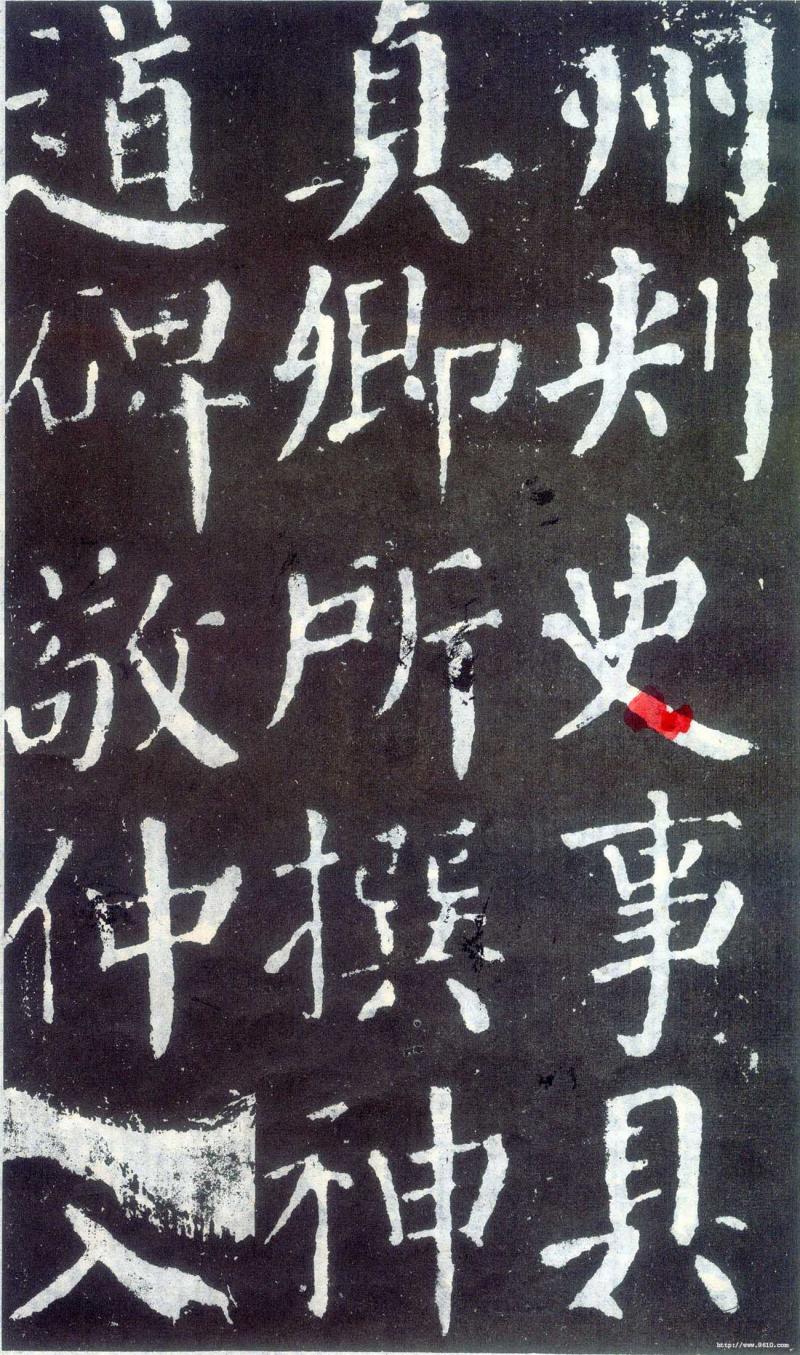 州刺史事具
真卿所撰神
道碑敬仲入
http://www.9610.com